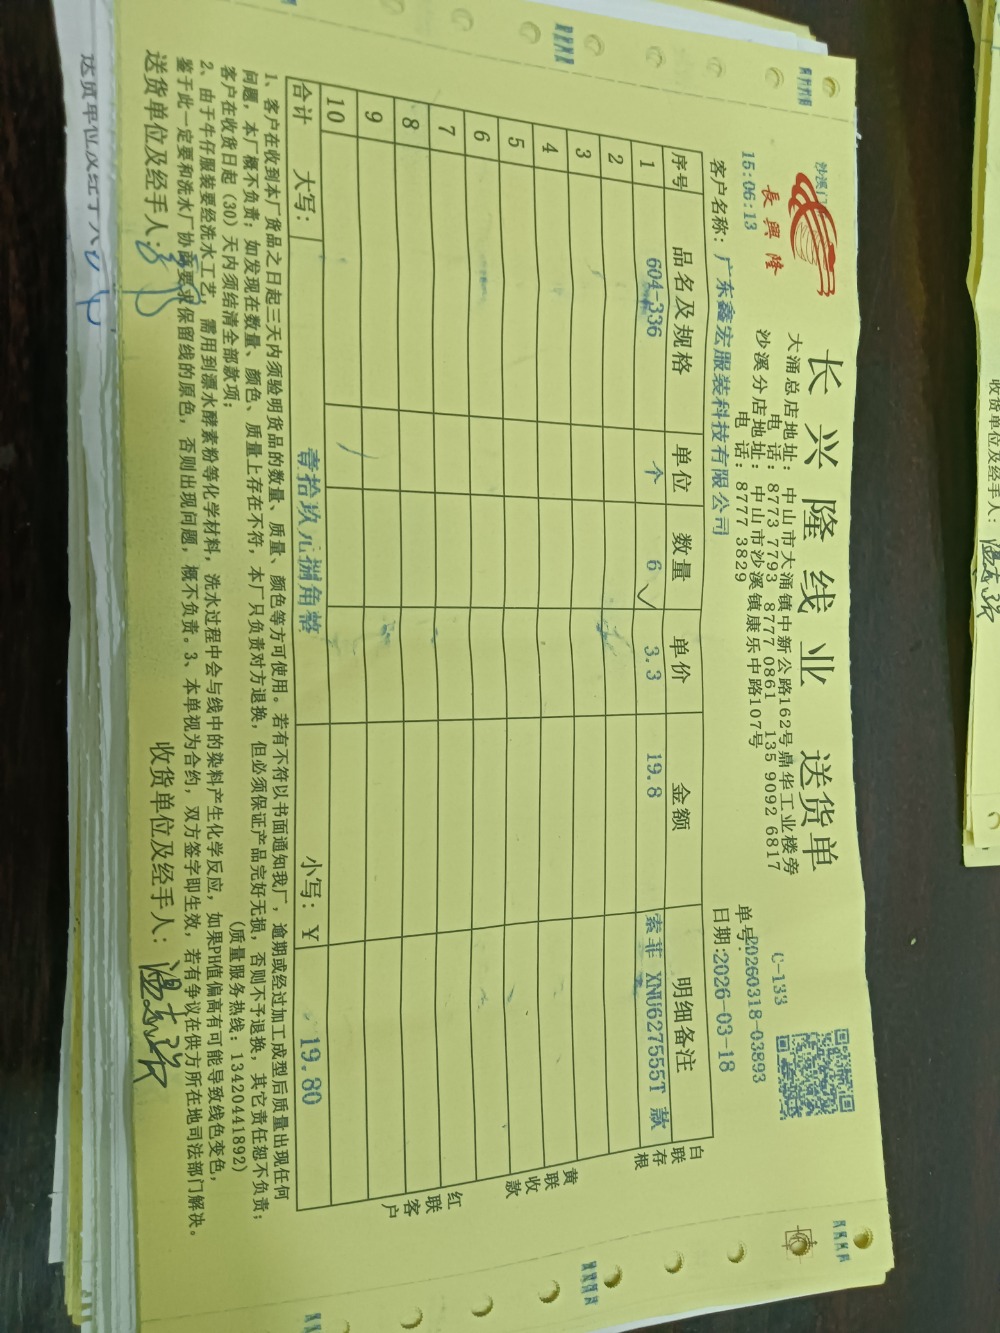 沙溪门
長興隆
15:06:13
长兴隆线业 送货单
大涌总店地址：中山市大涌镇中新公路162号鼎华工业楼旁
电 话：8773 7793 8777 0861 135 9092 6817
沙溪分店地址：中山市沙溪镇康乐中路107号
电 话：8777 3829
C-133
单号:20260318-03893
客户名称：广东鑫宏服装科技有限公司
日期:2026-03-18
序号 品名及规格 单位 数量 单价 金额 明细备注
1 604-336 个 6 3.3 19.8 索菲 XNU627555T 款
2
3
4
5
6
7
8
9
10
合计 大写： 壹拾玖元捌角整 小写：￥ 19.80
白联存根
黄联收款
红联客户
1、客户在收到本厂货品之日起三天内须验明货品的数量、质量、颜色等方可使用。若有不符以书面通知我厂，逾期或经过加工成型后质量出现任何
问题，本厂概不负责；如发现在数量、颜色、质量上存在不符，本厂只负责对方退换，但必须保证产品完好无损，否则不予退换，其它责任恕不负责；
客户在收货日起（30）天内须结清全部款项； (质量服务热线：13420441892)
2、由于牛仔服装要经洗水工艺，需用到漂水酵素粉等化学材料，洗水过程中会与线中的染料产生化学反应，如果PH值偏高有可能导致线色变色，
鉴于此一定要和洗水厂协商要求保留线的原色，否则出现问题，概不负责。3、本单视为合约，双方签字即生效，若有争议在供方所在地司法部门解决。
送货单位及经手人： 收货单位及经手人：
送货单位及经手人
收货单位及经手人：